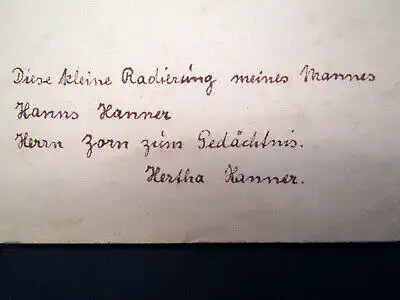 Diese kleine Radierung meines Mannes
Hanns Hanner
Herrn Zorn zum Gedächtnis.
Hertha Hanner.